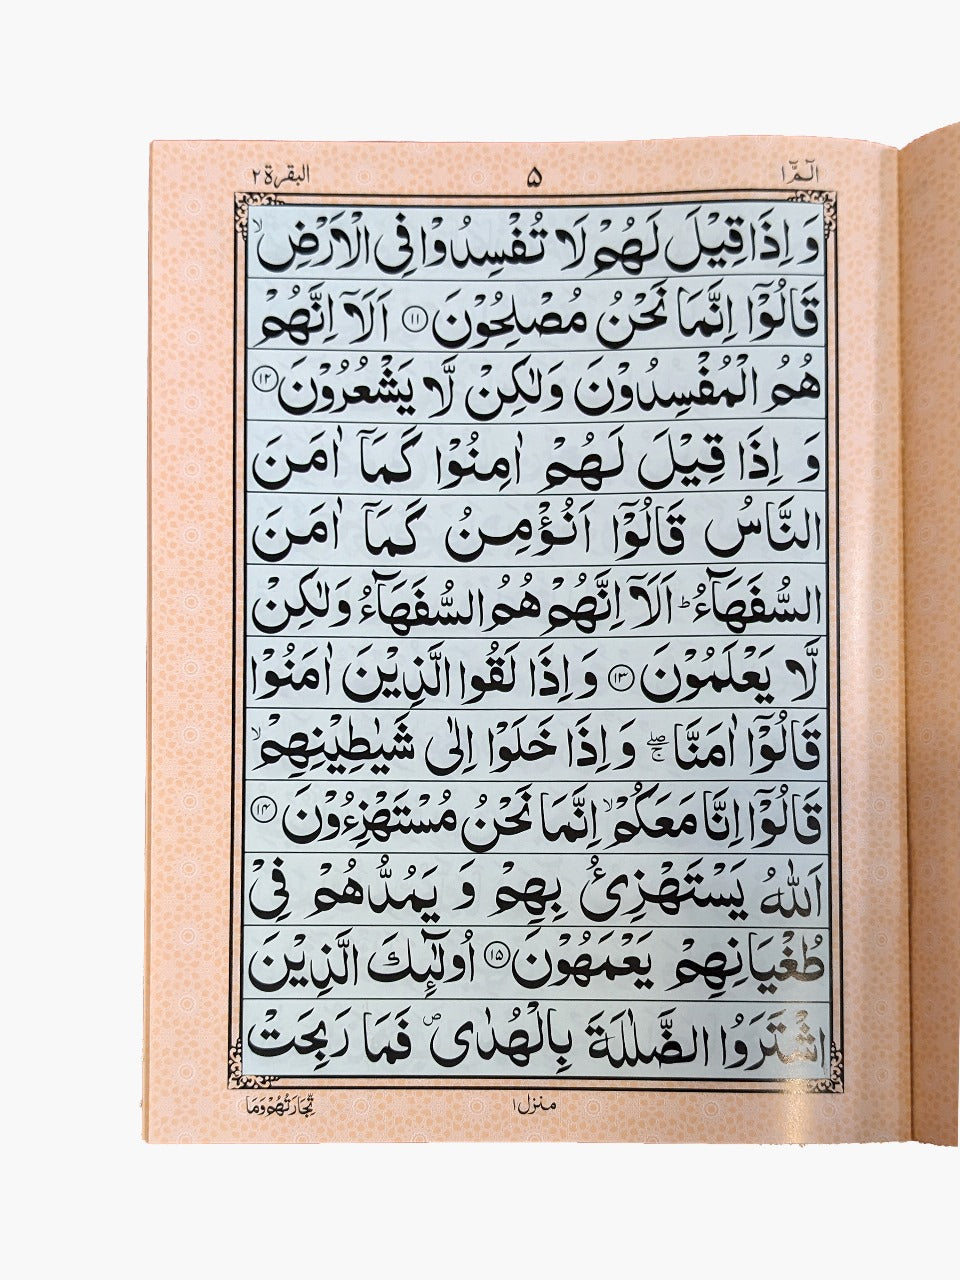 الٓمّٓ ١
۵
البقرة ٢
وَ اِذَا قِيْلَ لَهُمْ لَا تُفْسِدُوْا فِى الْاَرْضِ ۙ
قَالُوْٓا اِنَّمَا نَحْنُ مُصْلِحُوْنَ ۱۱ اَلَآ اِنَّهُمْ
هُمُ الْمُفْسِدُوْنَ وَلٰكِنْ لَّا يَشْعُرُوْنَ ۱۲
وَ اِذَا قِيْلَ لَهُمْ اٰمِنُوْا كَمَآ اٰمَنَ
النَّاسُ قَالُوْٓا اَنُؤْمِنُ كَمَآ اٰمَنَ
السُّفَهَآءُ ؕ اَلَآ اِنَّهُمْ هُمُ السُّفَهَآءُ وَلٰكِنْ
لَّا يَعْلَمُوْنَ ۱۳ وَ اِذَا لَقُوا الَّذِيْنَ اٰمَنُوْا
قَالُوْٓا اٰمَنَّا ۖۚ وَ اِذَا خَلَوْا اِلٰى شَيٰطِيْنِهِمْ ۙ
قَالُوْٓا اِنَّا مَعَكُمْ ۙ اِنَّمَا نَحْنُ مُسْتَهْزِءُوْنَ ۱۴
اَللّٰهُ يَسْتَهْزِئُ بِهِمْ وَ يَمُدُّهُمْ فِىْ
طُغْيَانِهِمْ يَعْمَهُوْنَ ۱۵ اُولٰٓئِكَ الَّذِيْنَ
اشْتَرَوُا الضَّلٰلَةَ بِالْهُدٰى ۪ فَمَا رَبِحَتْ
منزل ١
تِّجَارَتُهُمْ وَمَا